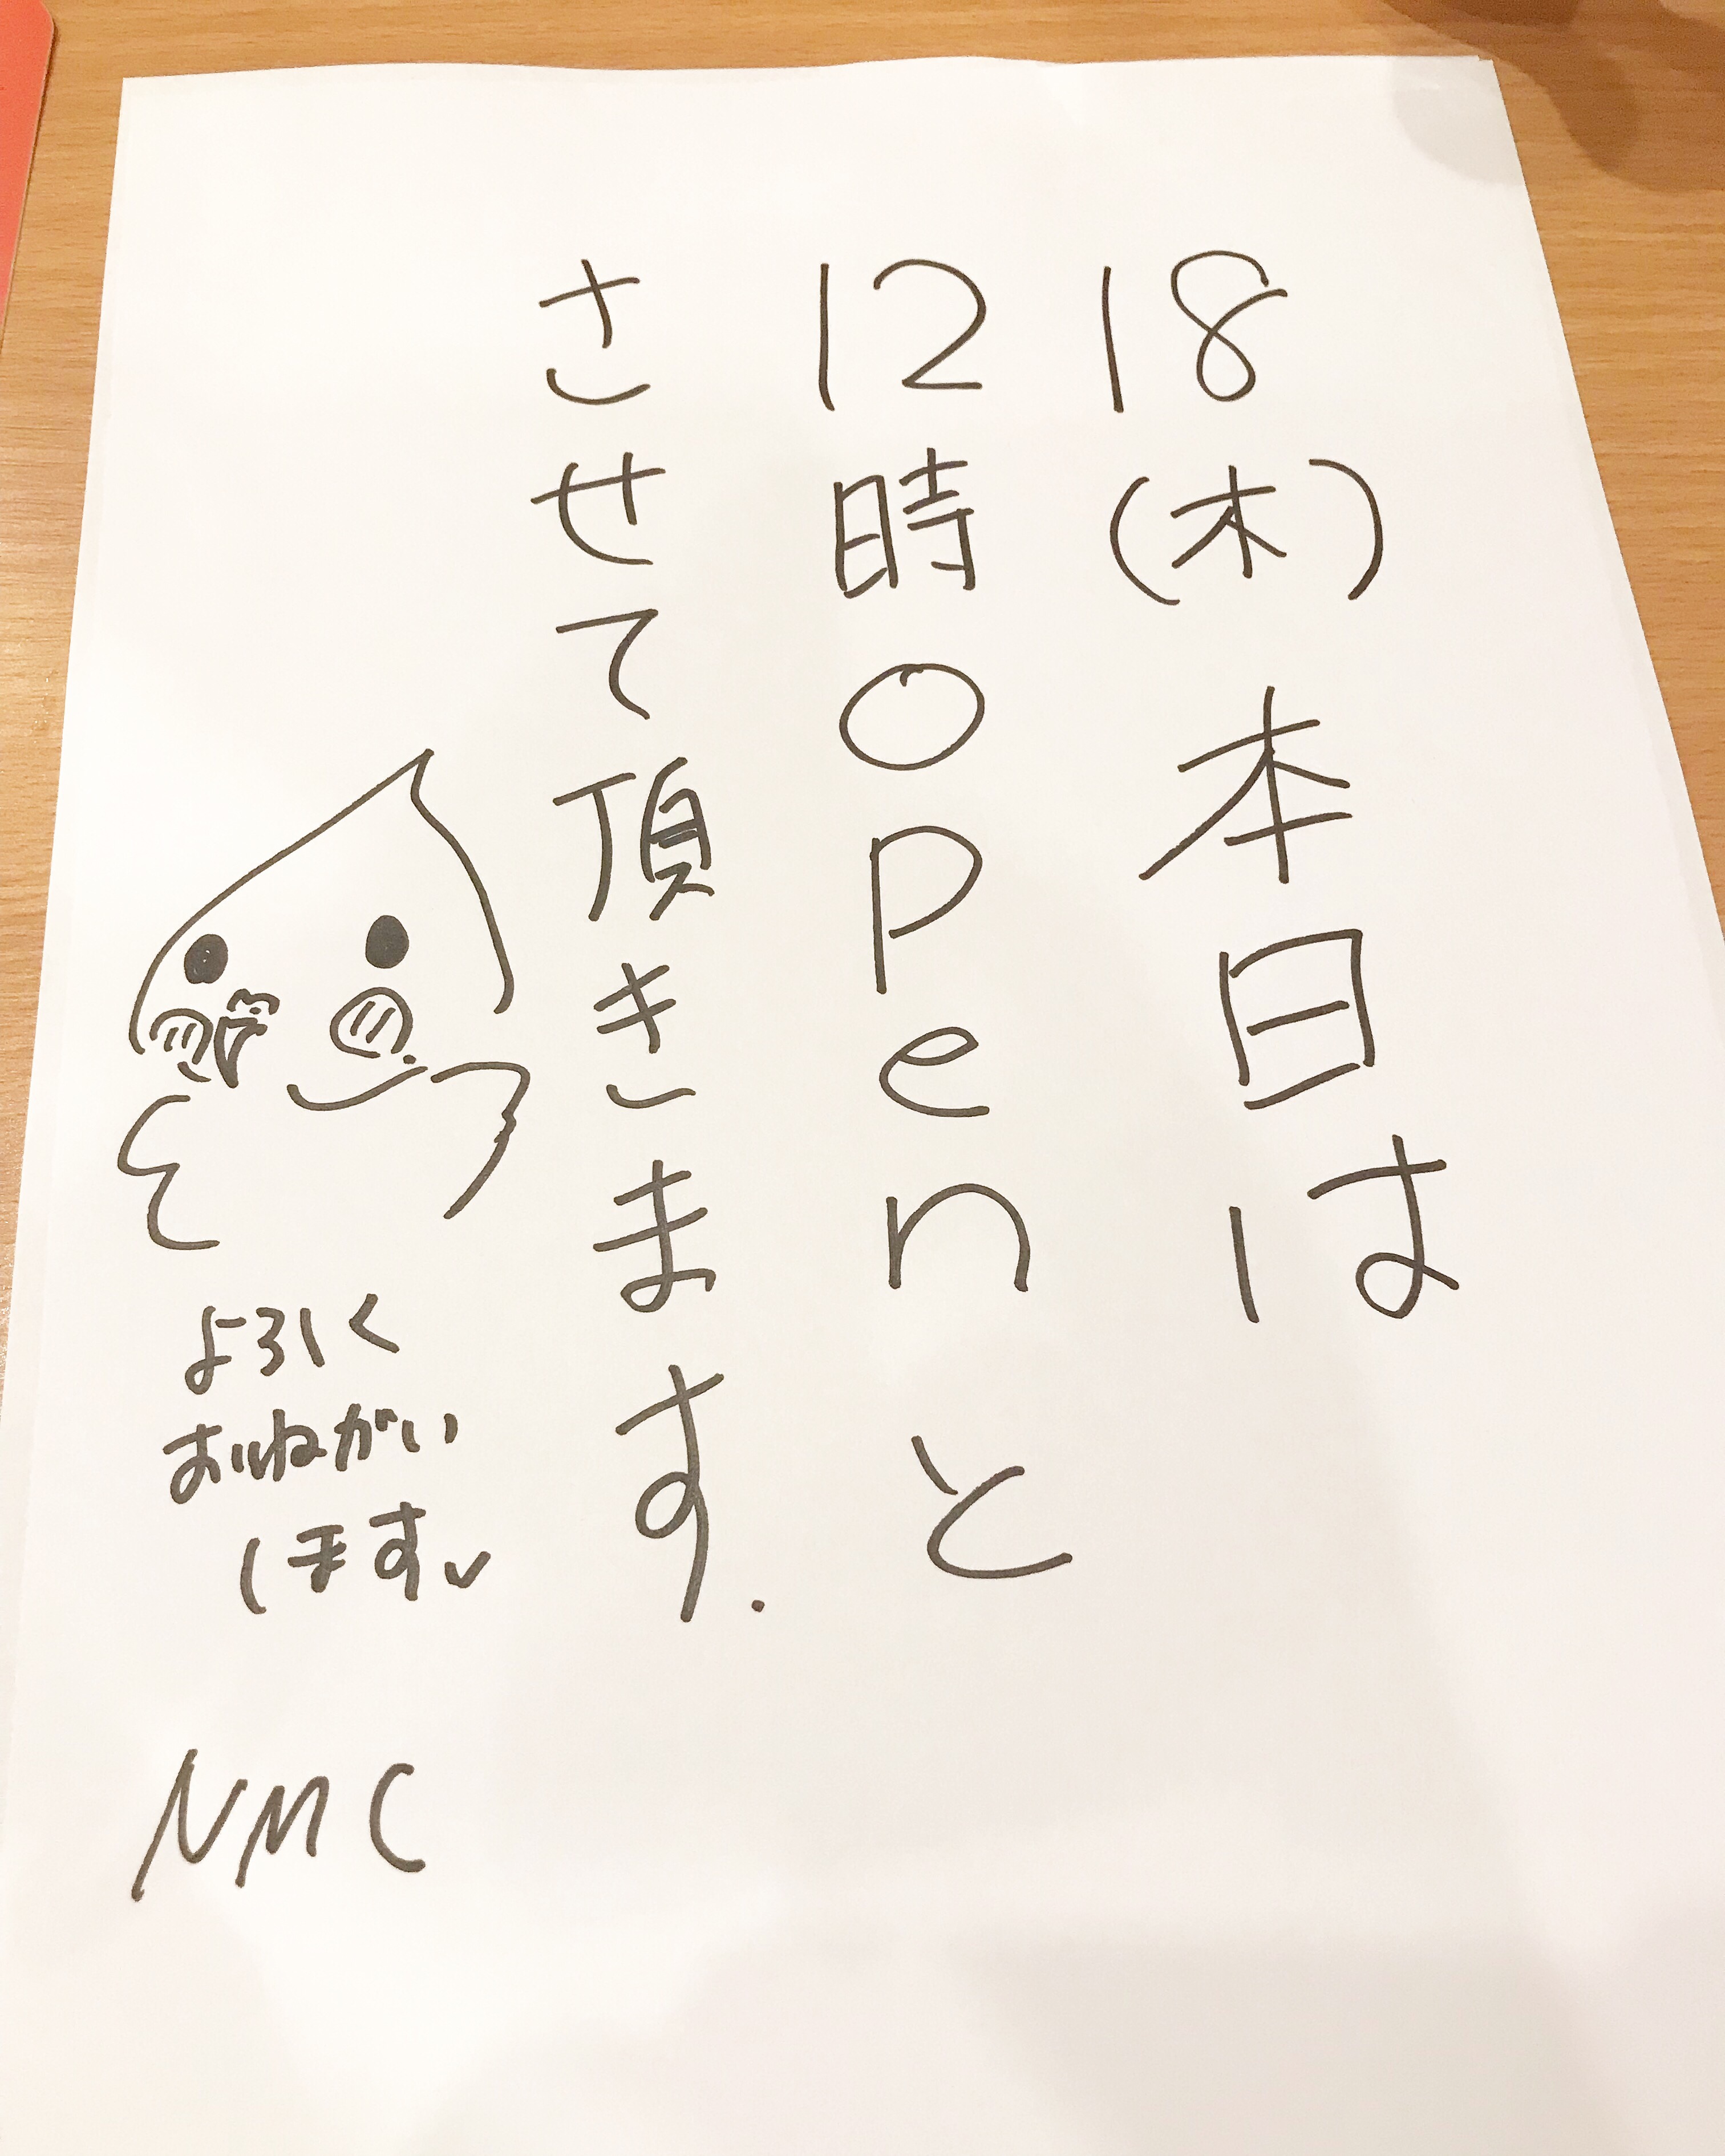 18(木) 本日は
12時openと
させて頂きます.
よろしく
おねがい
します
NMC